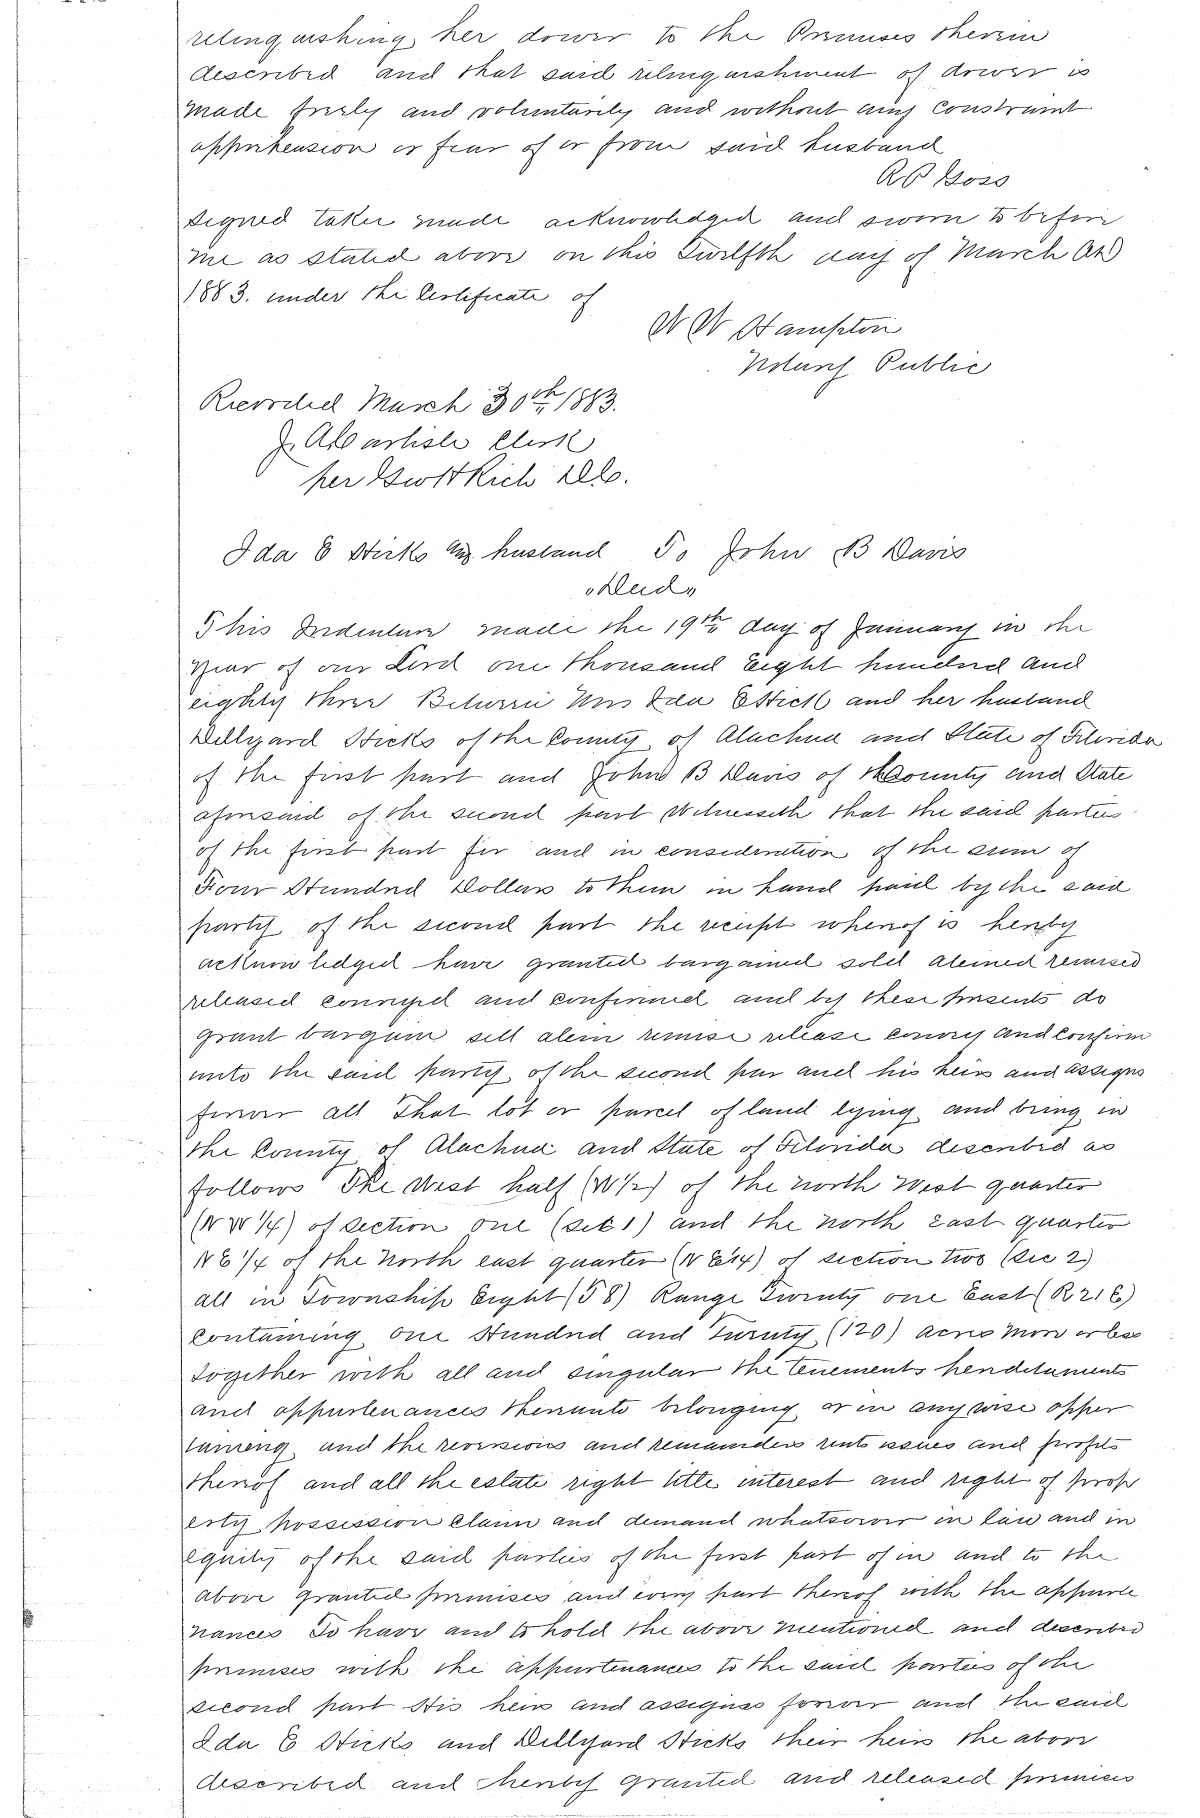 relinquishing her dower to the Premises therein
described and that said relinquishment of dower is
made freely and voluntarily and without any constraint
apprehension or fear of or from said husband
Goss
signed taken made acknowledged and sworn to before
me as stated above on this Twelfth day of March AD
1883. under the Certificate of
W W Hampton
Notary Public
Recorded March 30th 1883.
J. A Carlisle Clerk
per Rich D.C.
Ida E Hicks & husband To John B Davis
"Deed"
This Indenture made the 19th day of January in the
year of our Lord one thousand Eight hundred and
eighty three Between Mrs Ida E Hicks and her husband
Dellyard Hicks of the County of Alachua and State of Florida
of the first part and John B Davis of the County and State
aforesaid of the second part Witnesseth that the said parties
of the first part for and in consideration of the sum of
Four Hundred Dollars to them in hand paid by the said
party of the second part the receipt whereof is hereby
acknowledged have granted bargained sold aliened remised
released conveyed and confirmed and by these presents do
grant bargain sell alein remise release convey and confirm
unto the said party of the second par and his heirs and assigns
forever all That lot or parcel of land lying and being in
the County of Alachua and State of Florida described as
follows The West half (W 1/2) of the north West quarter
(N W 1/4) of section one (sec 1) and the north east quarter
N E 1/4 of the North east quarter (N E 1/4) of section two (Sec 2)
all in Township Eight (T 8) Range Twenty one East (R 21 E)
containing One Hundred and Twenty (120) acres more or less
together with all and singular the tenements hereditaments
and appurtenances thereunto belonging or in anywise apper
taining and the reversions and remainders rents issues and profits
thereof and all the estate right title interest and right of prop
erty possession claim and demand whatsoever in law and in
equity of the said parties of the first part of in and to the
above granted premises and every part thereof with the appurte
nances To have and to hold the above mentioned and described
premises with the appurtenances to the said parties of the
second part His heirs and assigns forever and the said
Ida E Hicks and Dellyard Hicks their heirs the above
described and hereby granted and released premises